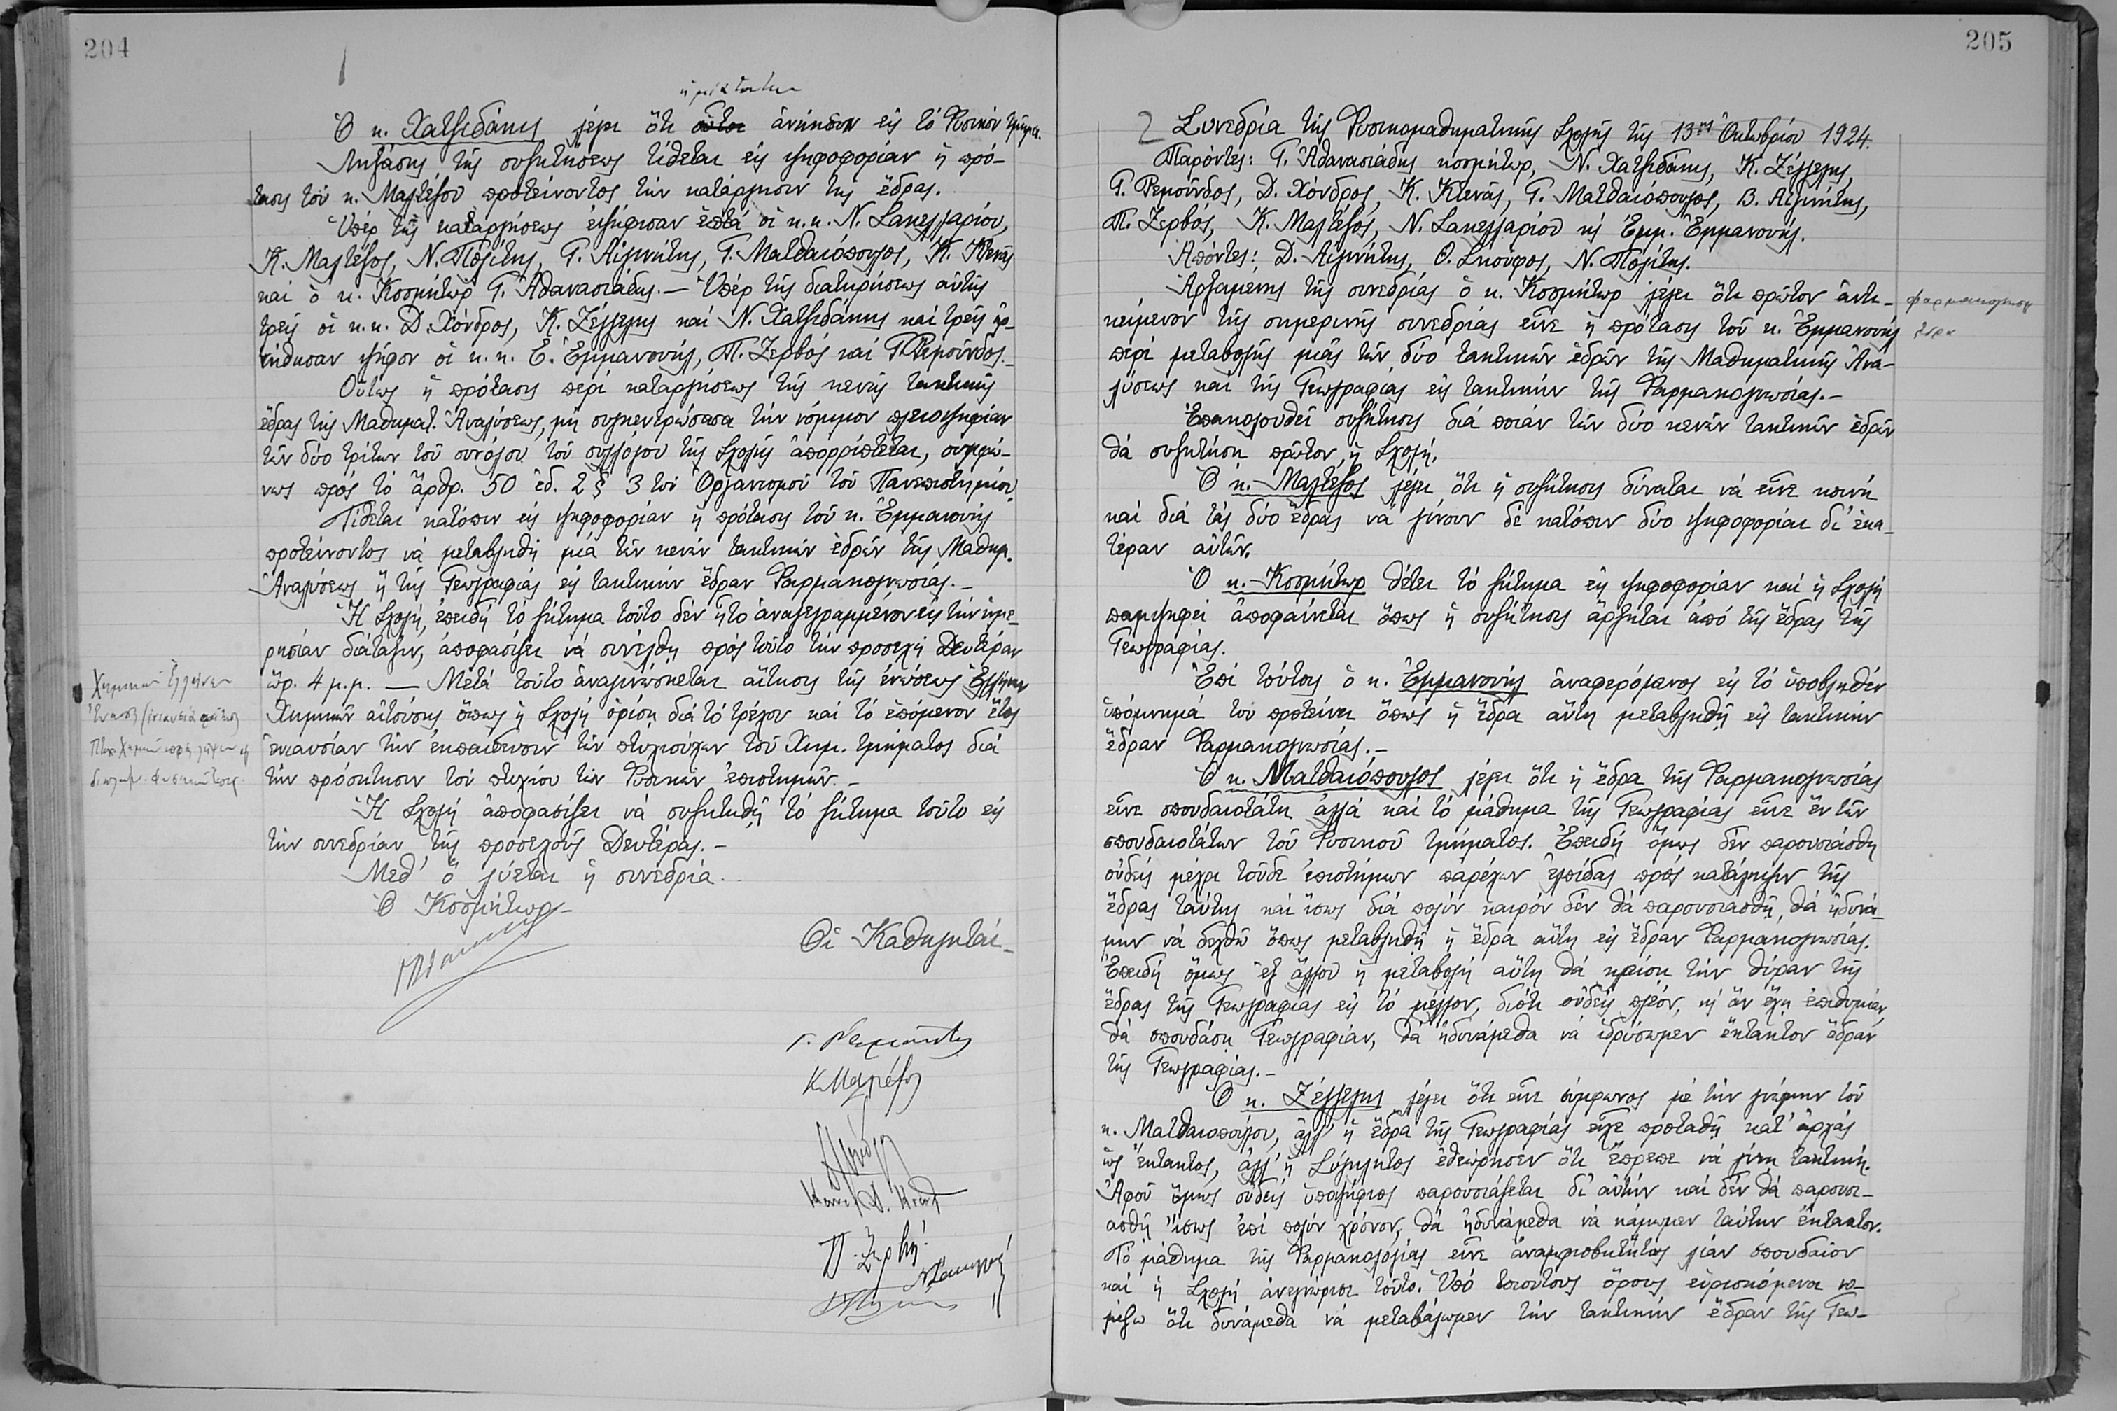 204
ἡ μετατροπὴ
Ὁ κ. Χατζιδάκης λέγει ὅτι οὗτοι ἀνῆκον εἰς τὸ Φυσικὸν τμῆμα.
Ληξάσης τῆς συζητήσεως τίθεται εἰς ψηφοφορίαν ἡ πρό-
τασις τοῦ κ. Μαλτέζου προτείνοντος τὴν κατάργησιν τῆς ἕδρας.
Ὑπὲρ τῆς καταργήσεως ἐψήφισαν ἑπτά οἱ κ.κ. Ν. Σακελλαρίου,
Κ. Μαλτέζος, Ν. Πολίτης, Γ. Αἰγινήτης, Γ. Ματθαιόπουλος, Κ. Κτενᾶς
καὶ ὁ κ. Κοσμήτωρ Γ. Ἀθανασιάδης. — Ὑπὲρ τῆς διατηρήσεως αὐτῆς
τρεῖς οἱ κ.κ. Δ. Χόνδρος, Κ. Ζέγγελης καὶ Ν. Χατζιδάκης καὶ τρεῖς ἠρ-
νήθησαν ψῆφον οἱ κ.κ. Ε. Ἐμμανουήλ, Π. Ζερβός καὶ Γ. Ρεμοῦνδος.
Οὕτως ἡ πρότασις περὶ καταργήσεως τῆς κενῆς τακτικῆς
ἕδρας τῆς Μαθηματ. Ἀναλύσεως, μὴ συγκεντρώσασα τὴν νόμιμον πλειοψηφίαν
τῶν δύο τρίτων τοῦ συνόλου τοῦ συλλόγου τῆς Σχολῆς ἀπορρίπτεται, συμφώ-
νως πρὸς τὸ ἄρθρ. 50 ἐδ. 2 § 3 τοῦ Ὀργανισμοῦ τοῦ Πανεπιστημίου.
Τίθεται κατόπιν εἰς ψηφοφορίαν ἡ πρότασις τοῦ κ. Ἐμμανουήλ
προτείνοντος νὰ μεταβληθῇ μία τῶν κενῶν τακτικῶν ἑδρῶν τῆς Μαθημ.
Ἀναλύσεως ἢ τῆς Γεωγραφίας εἰς τακτικὴν ἕδραν Φαρμακογνωσίας.—
Ἡ Σχολή, ἐπειδὴ τὸ ζήτημα τοῦτο δὲν ἦτο ἀναγεγραμμένον εἰς τὴν ἡμε-
ρησίαν διάταξιν, ἀποφασίζει νὰ συνέλθῃ πρὸς τοῦτο τὴν προσεχῆ Δευτέραν
ὥρ. 4 μ.μ. — Μετὰ τοῦτο ἀναγινώσκεται αἴτησις τῆς ἑνώσεως Ἑλλήνων
Χημικῶν αἰτούσης ὅπως ἡ Σχολὴ ὁρίσῃ διὰ τὸ τρέχον καὶ τὸ ἑπόμενον ἔτος
ἐνιαυσίαν τὴν ἐκπαίδευσιν τῶν πτυχιούχων τοῦ Χημ. τμήματος διὰ
τὴν πρόσκτησιν τοῦ πτυχίου τῶν Φυσικῶν ἐπιστημῶν.—
Ἡ Σχολὴ ἀποφασίζει νὰ συζητηθῇ τὸ ζήτημα τοῦτο εἰς
τὴν συνεδρίαν τῆς προσεχοῦς Δευτέρας.—
Μεθ' ὃ λύεται ἡ συνεδρία.
Ὁ Κοσμήτωρ
Οἱ Καθηγηταί
Γ. Ρεμοῦνδος
Κ. Μαλτέζος
Π. Ζερβός
205
2 Συνεδρία τῆς Φυσικομαθηματικῆς Σχολῆς τῆς 13ης Ὀκτωβρίου 1924.
Παρόντες: Γ. Ἀθανασιάδης κοσμήτωρ, Ν. Χατζιδάκης, Κ. Ζέγγελης,
Γ. Ρεμοῦνδος, Δ. Χόνδρος, Κ. Κτενᾶς, Γ. Ματθαιόπουλος, Β. Αἰγινήτης,
Π. Ζερβός, Κ. Μαλτέζος, Ν. Σακελλαρίου κὶ Ἐμμ. Ἐμμανουήλ.
Ἀπόντες: Δ. Αἰγινήτης, Θ. Σκοῦφος, Ν. Πολίτης.
Ἀρξαμένης τῆς συνεδρίας ὁ κ. Κοσμήτωρ λέγει ὅτι πρῶτον ἀντι-
φαρμακογνωσ.
ἕδρα
κείμενον τῆς σημερινῆς συνεδρίας εἶνε ἡ πρότασις τοῦ κ. Ἐμμανουήλ
περὶ μεταβολῆς μιᾶς τῶν δύο τακτικῶν ἑδρῶν τῆς Μαθηματικῆς Ἀνα-
λύσεως καὶ τῆς Γεωγραφίας εἰς τακτικὴν τῆς Φαρμακογνωσίας.—
Ἐπακολουθεῖ συζήτησις διὰ ποίαν τῶν δύο κενῶν τακτικῶν ἑδρῶν
θὰ συζητήσῃ πρῶτον ἡ Σχολή.
Ὁ κ. Μαλτέζος λέγει ὅτι ἡ συζήτησις δύναται νὰ εἶνε κοινὴ
καὶ διὰ τὰς δύο ἕδρας νὰ γίνουν δὲ κατόπιν δύο ψηφοφορίαι δι' ἑκα-
τέραν αὐτῶν.
Ὁ κ. Κοσμήτωρ θέτει τὸ ζήτημα εἰς ψηφοφορίαν καὶ ἡ Σχολὴ
παμψηφεὶ ἀποφαίνεται ὅπως ἡ συζήτησις ἄρξηται ἀπὸ τῆς ἕδρας τῆς
Γεωγραφίας.
Ἐπὶ τούτοις ὁ κ. Ἐμμανουήλ ἀναφερόμενος εἰς τὸ ὑποβληθὲν
ὑπόμνημά του προτείνει ὅπως ἡ ἕδρα αὕτη μεταβληθῇ εἰς τακτικὴν
ἕδραν Φαρμακογνωσίας.—
Ὁ κ. Ματθαιόπουλος λέγει ὅτι ἡ ἕδρα τῆς Φαρμακογνωσίας
εἶνε σπουδαιοτάτη ἀλλὰ καὶ τὸ μάθημα τῆς Γεωγραφίας εἶνε ἓν τῶν
σπουδαιοτάτων τοῦ Φυσικοῦ τμήματος. Ἐπειδὴ ὅμως δὲν παρουσιάσθη
οὐδεὶς μέχρι τοῦδε ἐπιστήμων παρέχων ἐλπίδας πρὸς κατάληψιν τῆς
ἕδρας ταύτης καὶ ἴσως διὰ πολὺν καιρὸν δὲν θὰ παρουσιασθῇ, θὰ ἠδυνά-
μην νὰ δεχθῶ ὅπως μεταβληθῇ ἡ ἕδρα αὕτη εἰς ἕδραν Φαρμακογνωσίας.
Ἐπειδὴ ὅμως ἐξ ἄλλου ἡ μεταβολὴ αὕτη θὰ κλείσῃ τὴν θύραν τῆς
ἕδρας τῆς Γεωγραφίας εἰς τὸ μέλλον, διότι οὐδεὶς πλέον, κὶ ἂν ἔχῃ ἐπιθυμίαν,
θὰ σπουδάσῃ Γεωγραφίαν, θὰ ἠδυνάμεθα νὰ ἱδρύσωμεν ἔκτακτον ἕδραν
τῆς Γεωγραφίας.—
Ὁ κ. Ζέγγελης λέγει ὅτι εἶνε σύμφωνος μὲ τὴν γνώμην τοῦ
κ. Ματθαιοπούλου, ἀλλ' ἡ ἕδρα τῆς Γεωγραφίας εἶχε προταθῆ κατ' ἀρχὰς
ὡς ἔκτακτος, ἀλλ' ἡ Σύγκλητος ἐθεώρησεν ὅτι ἔπρεπε νὰ γίνῃ τακτική.
Ἀφοῦ ὅμως οὐδεὶς ὑποψήφιος παρουσιάζεται δι' αὐτὴν καὶ δὲν θὰ παρουσι-
ασθῇ ἴσως ἐπὶ πολὺν χρόνον, θὰ ἠδυνάμεθα νὰ κάμωμεν ταύτην ἔκτακτον.
Τὸ μάθημα τῆς Φαρμακολογίας εἶνε ἀναμφισβητήτως λίαν σπουδαῖον
καὶ ἡ Σχολὴ ἀνεγνώρισε τοῦτο. Ὑπὸ τοιούτους ὅρους εὑρισκόμενοι νο-
μίζω ὅτι δυνάμεθα νὰ μεταβάλωμεν τὴν τακτικὴν ἕδραν τῆς Γεω-